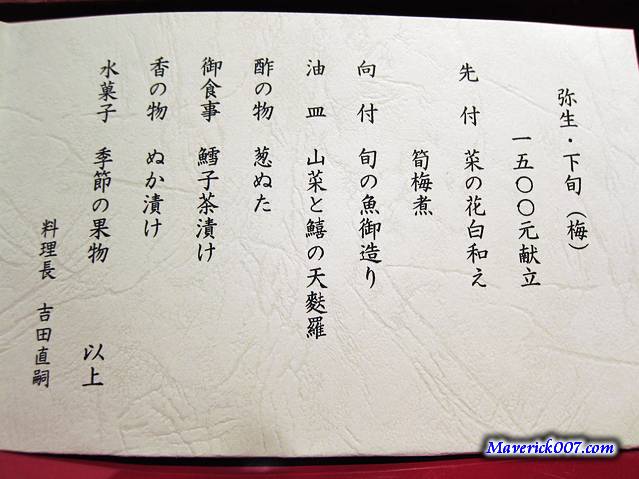 弥生・下旬（梅）
一五〇〇元献立
先付　菜の花白和え
筍梅煮
向付　旬の魚御造り
油皿　山菜と鱚の天麩羅
酢の物　葱ぬた
御食事　鱈子茶漬け
香の物　ぬか漬け
水菓子　季節の果物
以上
料理長　吉田直嗣
Maverick007.com